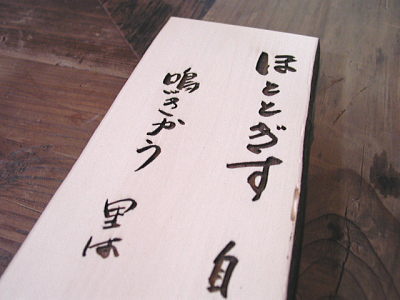 ほととぎす 自
鳴ごきかう
里は